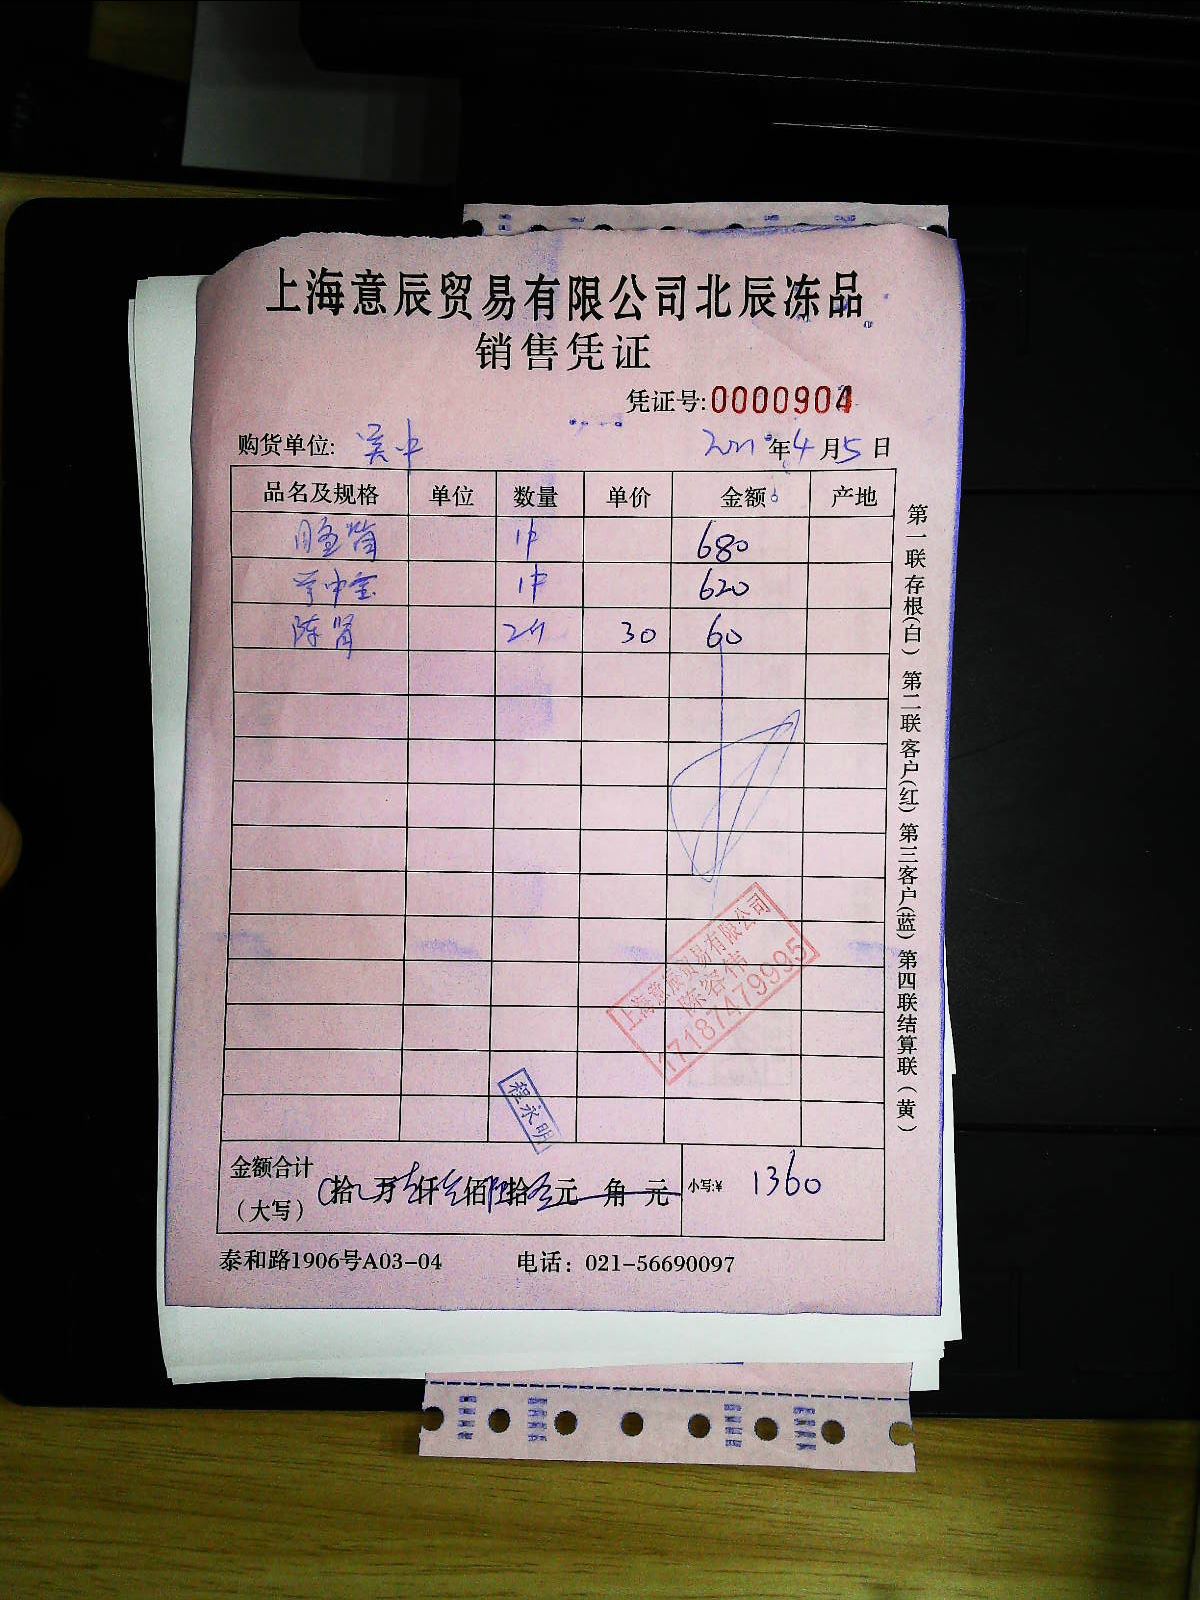 上海意辰贸易有限公司北辰冻品
销售凭证
凭证号:0000904
购货单位: 吴中 2021年4月5日
品名及规格 单位 数量 单价 金额 产地
1件 680
1件 620
陈肾 2斤 30 60
上海意辰贸易有限公司
陈容伟
17187479995
程永明
金额合计 拾 万 仟 佰 拾 元 角 元 小写:¥ 1360
(大写)
泰和路1906号A03-04 电话: 021-56690097
第一联存根(白) 第二联客户(红) 第三客户(蓝) 第四联结算联(黄)